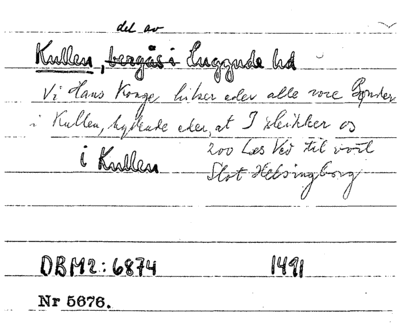 del av
Kullen, bergås i Luggude hd
Vi Hans Konge hilser eder alle vore Bønder
i Kullen, bydende eder, at I skikker os
i Kullen 200 Læs Ved til vort
Slot Helsingborg
DBM2:6874 1491
Nr 5676.